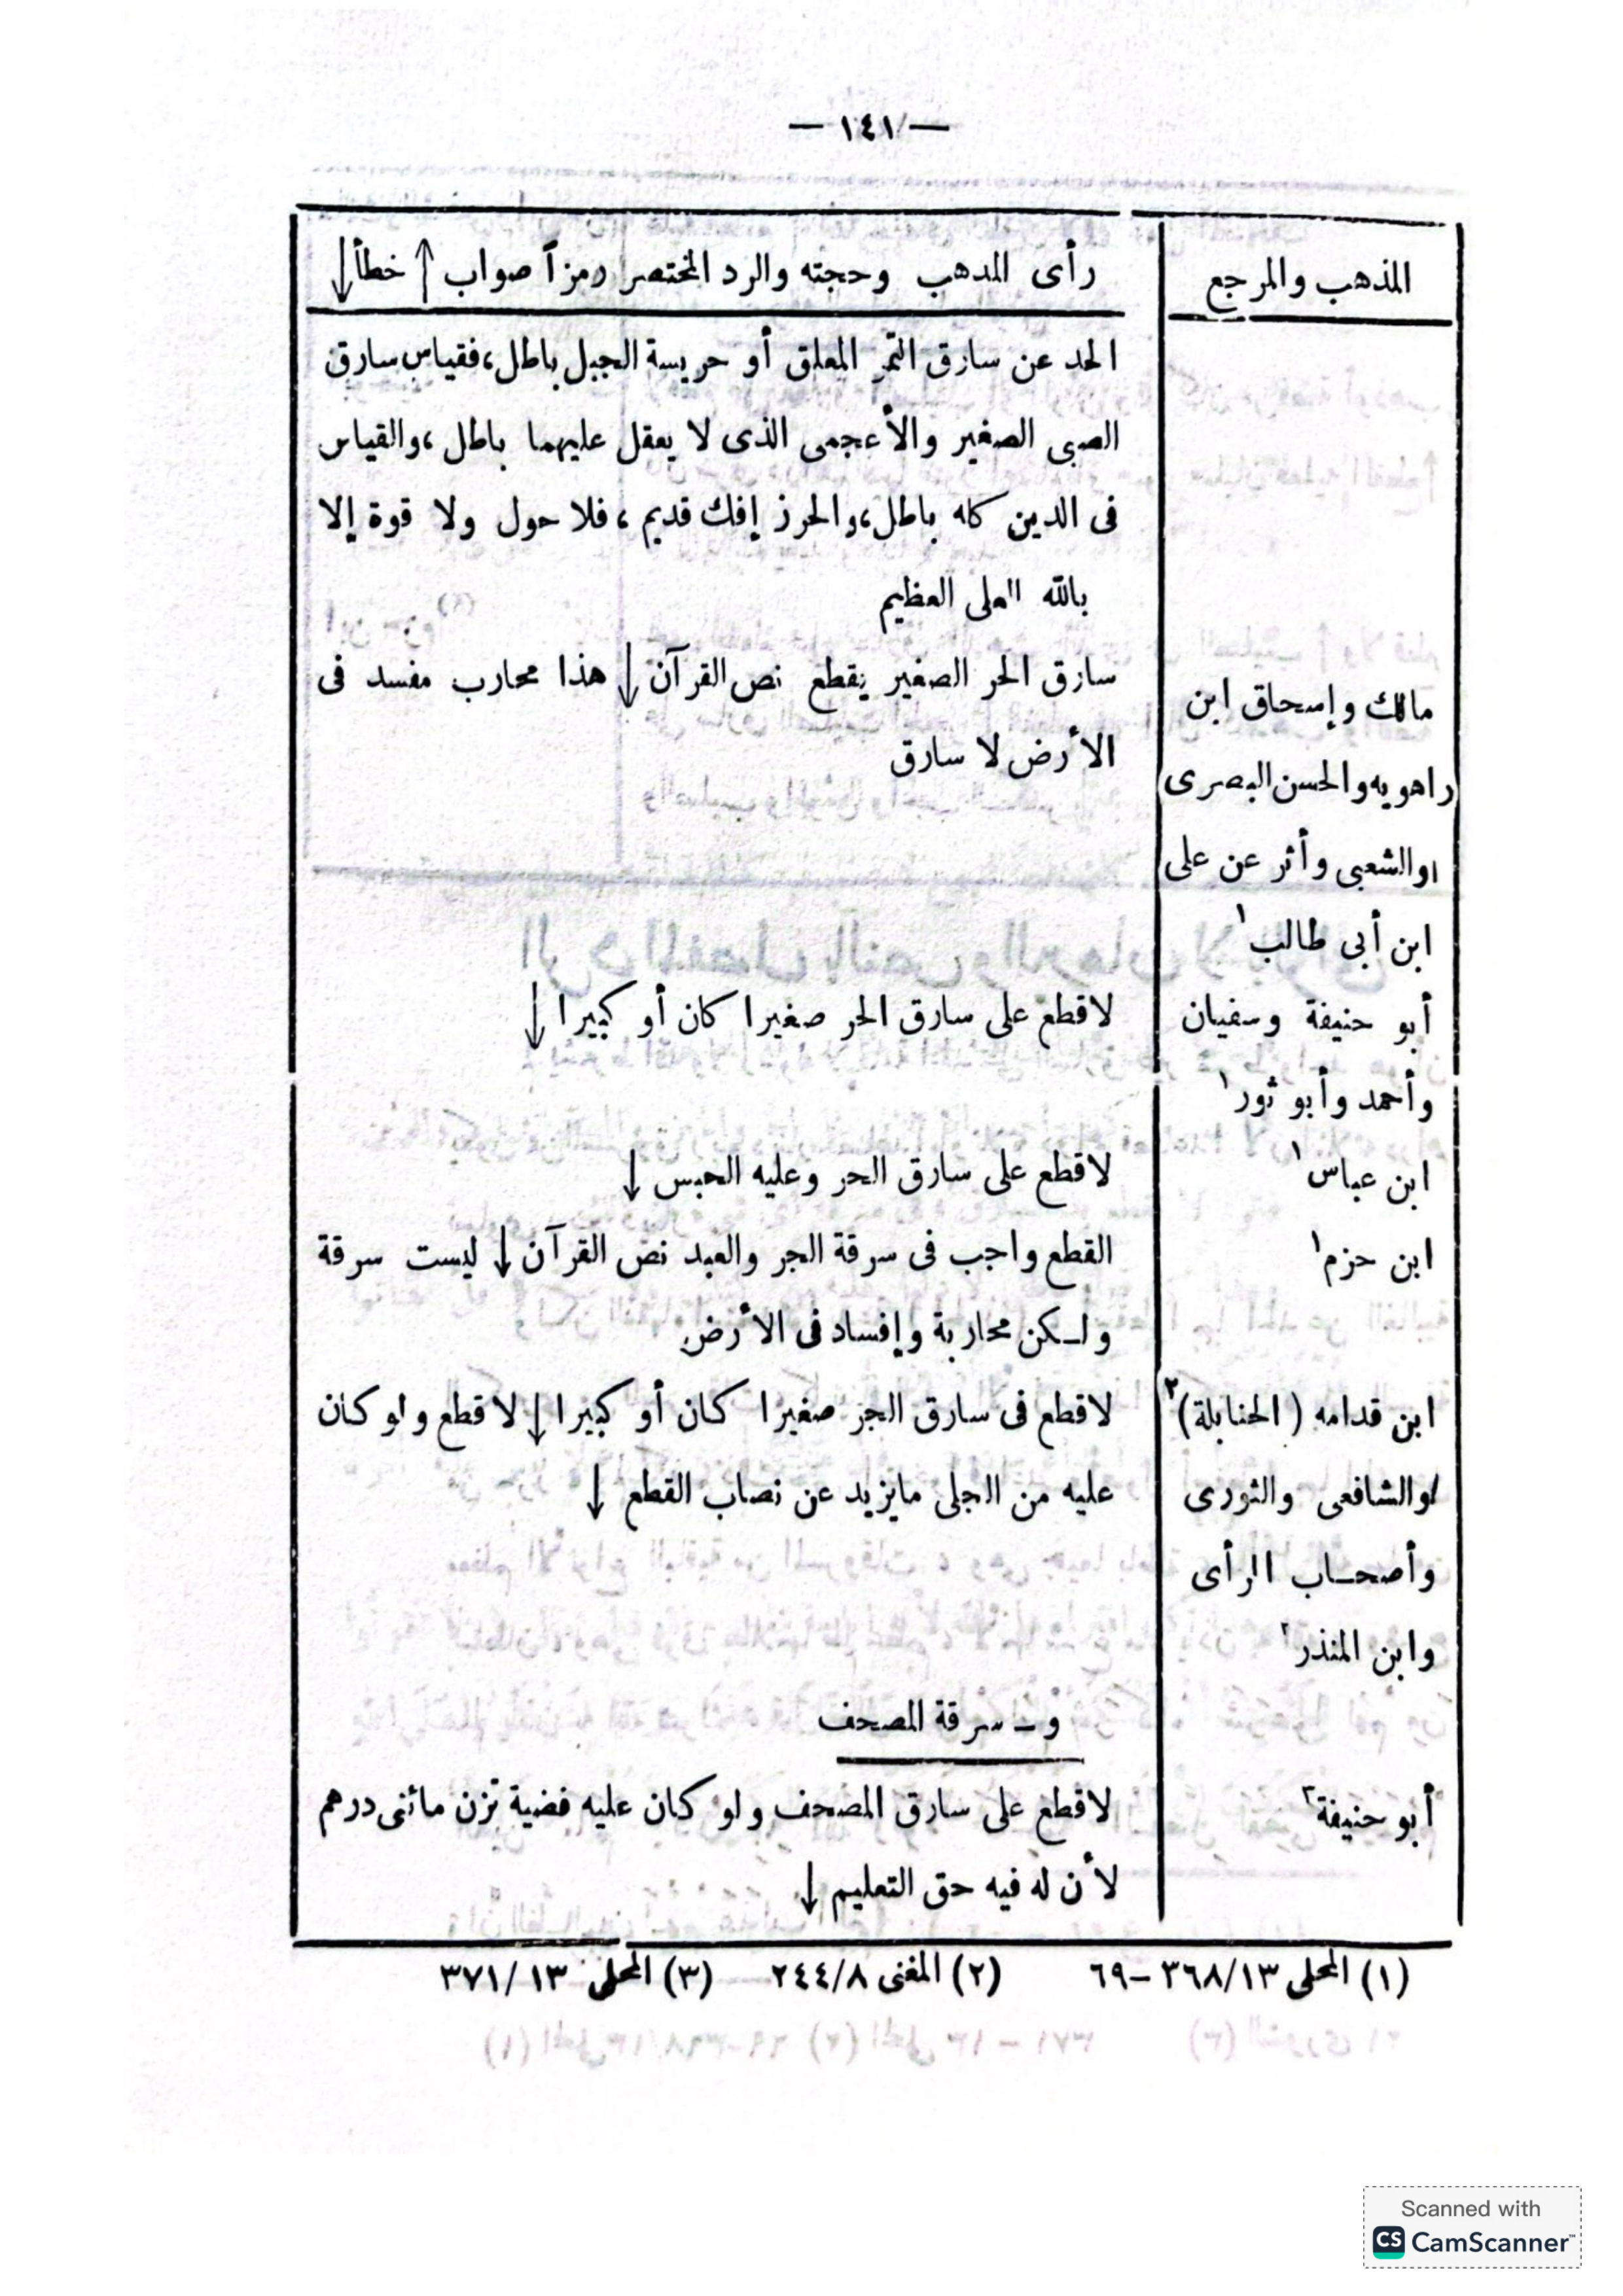 — ١٤١ —
المذهب والمرجع
رأى المدهب وحجته والرد المختصر رمزاً صواب ↑ خطأ ↓
الحد عن سارق التمر المعلق أو حريسة الجبل باطل، فقياس سارق
الصبى الصغير والأعجمى الذى لا يعقل عليهما باطل، والقياس
فى الدين كله باطل، والحرز إفك قديم، فلا حول ولا قوة إلا
بالله العلى العظيم
مالك وإسحاق ابن
راهويه والحسن البصرى
والشعبى وأثر عن على
ابن أبى طالب١
سارق الحر الصغير يقطع نص القرآن ↓ هذا محارب مفسد فى
الأرض لا سارق
أبو حنيفة وسفيان
وأحمد وأبو ثور١
لا قطع على سارق الحر صغيرا كان أو كبيرا ↓
ابن عباس١
لا قطع على سارق الحر وعليه الحبس ↓
ابن حزم١
القطع واجب فى سرقة الحر والعبد نص القرآن ↓ ليست سرقة
ولكن محاربة وإفساد فى الأرض
ابن قدامه (الحنابلة)٢
والشافعى والثورى
وأصحاب الرأى
وابن المنذر٢
لا قطع فى سارق الحر صغيرا كان أو كبيرا ↓ لا قطع ولو كان
عليه من الحلى مايزيد عن نصاب القطع ↓
و ـ سرقة المصحف
أبو حنيفة٣
لا قطع على سارق المصحف ولو كان عليه فضية تزن مائتى درهم
لأن له فيه حق التعليم ↓
(١) المحلى ٣٦٨/١٣ -٦٩ (٢) المغنى ٢٤٤/٨ (٣) المحلى ٣٧١/١٣
Scanned with
CS CamScanner™